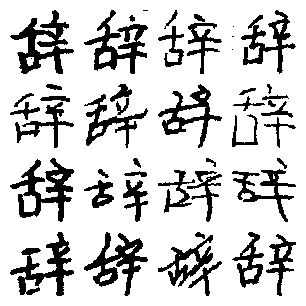 辞辞辞辞
辞辞辞辞
辞辞辞辞
辞辞辞辞